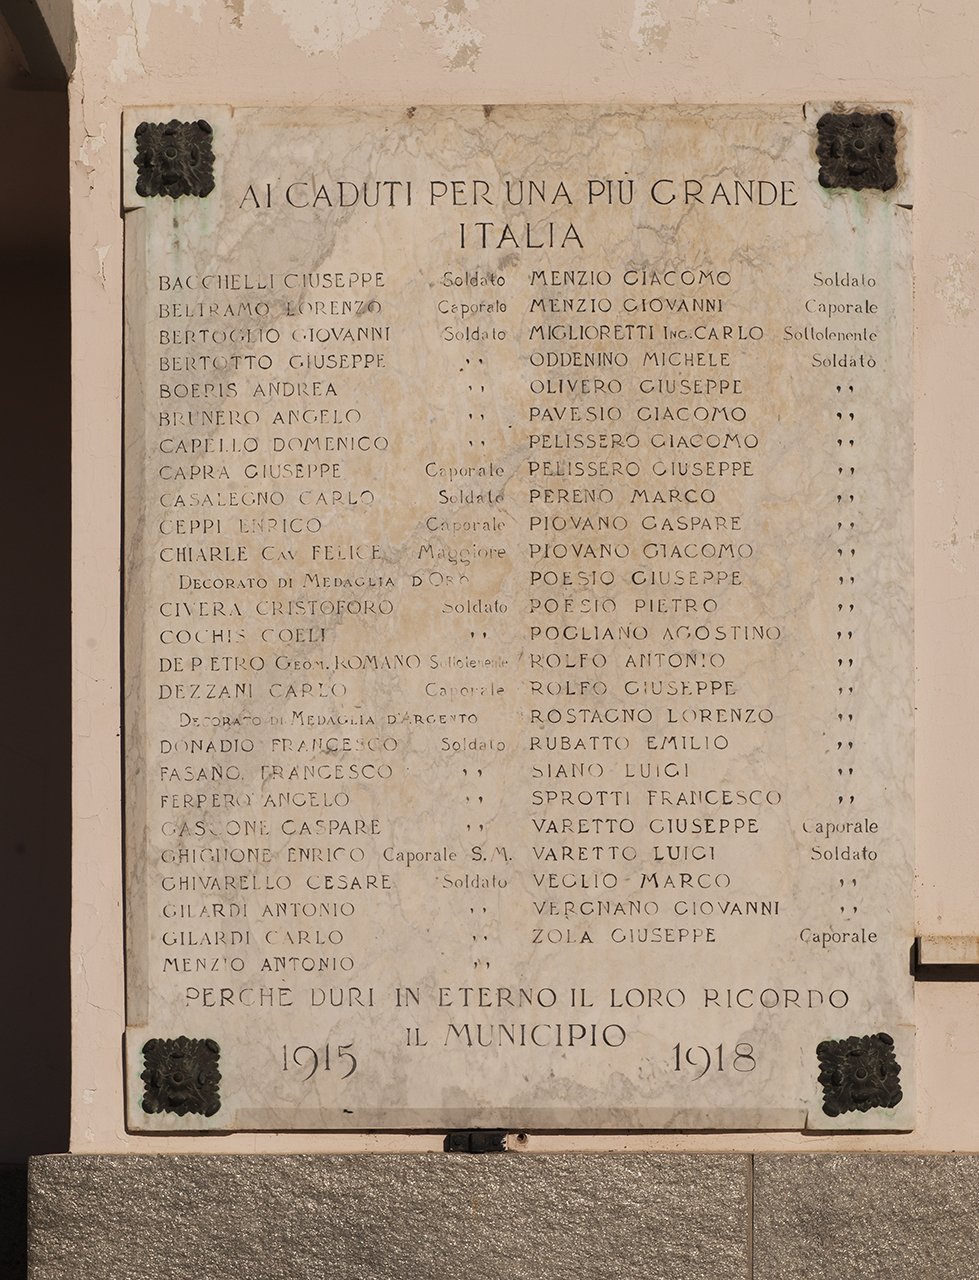 AI CADUTI PER UNA PIÙ GRANDE
ITALIA
BACCHELLI GIUSEPPE Soldato
BELTRAMO LORENZO Caporale
BERTOGLIO GIOVANNI Soldato
BERTOTTO GIUSEPPE ,,
BOERIS ANDREA ,,
BRUNERO ANGELO ,,
CAPELLO DOMENICO ,,
CAPRA GIUSEPPE Caporale
CASALEGNO CARLO Soldato
CEPPI ENRICO Caporale
CHIARLE CAV FELICE Maggiore
DECORATO DI MEDAGLIA D'ORO
CIVERA CRISTOFORO Soldato
COCHIS COELI ,,
DE PIETRO GEOM. ROMANO Sottotenente
DEZZANI CARLO Caporale
DECORATO DI MEDAGLIA D'ARGENTO
DONADIO FRANCESCO Soldato
FASANO FRANCESCO ,,
FERRERO ANGELO ,,
GASCONE GASPARE ,,
GHIGLIONE ENRICO Caporale S.M.
GHIVARELLO CESARE Soldato
GILARDI ANTONIO ,,
GILARDI CARLO ,,
MENZIO ANTONIO ,,
MENZIO GIACOMO Soldato
MENZIO GIOVANNI Caporale
MIGLIORETTI ING. CARLO Sottotenente
ODDENINO MICHELE Soldato
OLIVERO GIUSEPPE ,,
PAVESIO GIACOMO ,,
PELISSERO GIACOMO ,,
PELISSERO GIUSEPPE ,,
PERENO MARCO ,,
PIOVANO GASPARE ,,
PIOVANO GIACOMO ,,
POESIO GIUSEPPE ,,
POESIO PIETRO ,,
POGLIANO AGOSTINO ,,
ROLFO ANTONIO ,,
ROLFO GIUSEPPE ,,
ROSTAGNO LORENZO ,,
RUBATTO EMILIO ,,
SIANO LUIGI ,,
SPROTTI FRANCESCO ,,
VARETTO GIUSEPPE Caporale
VARETTO LUIGI Soldato
VEGLIO MARCO ,,
VERGNANO GIOVANNI ,,
ZOLA GIUSEPPE Caporale
PERCHÈ DURI IN ETERNO IL LORO RICORDO
IL MUNICIPIO
1915 1918